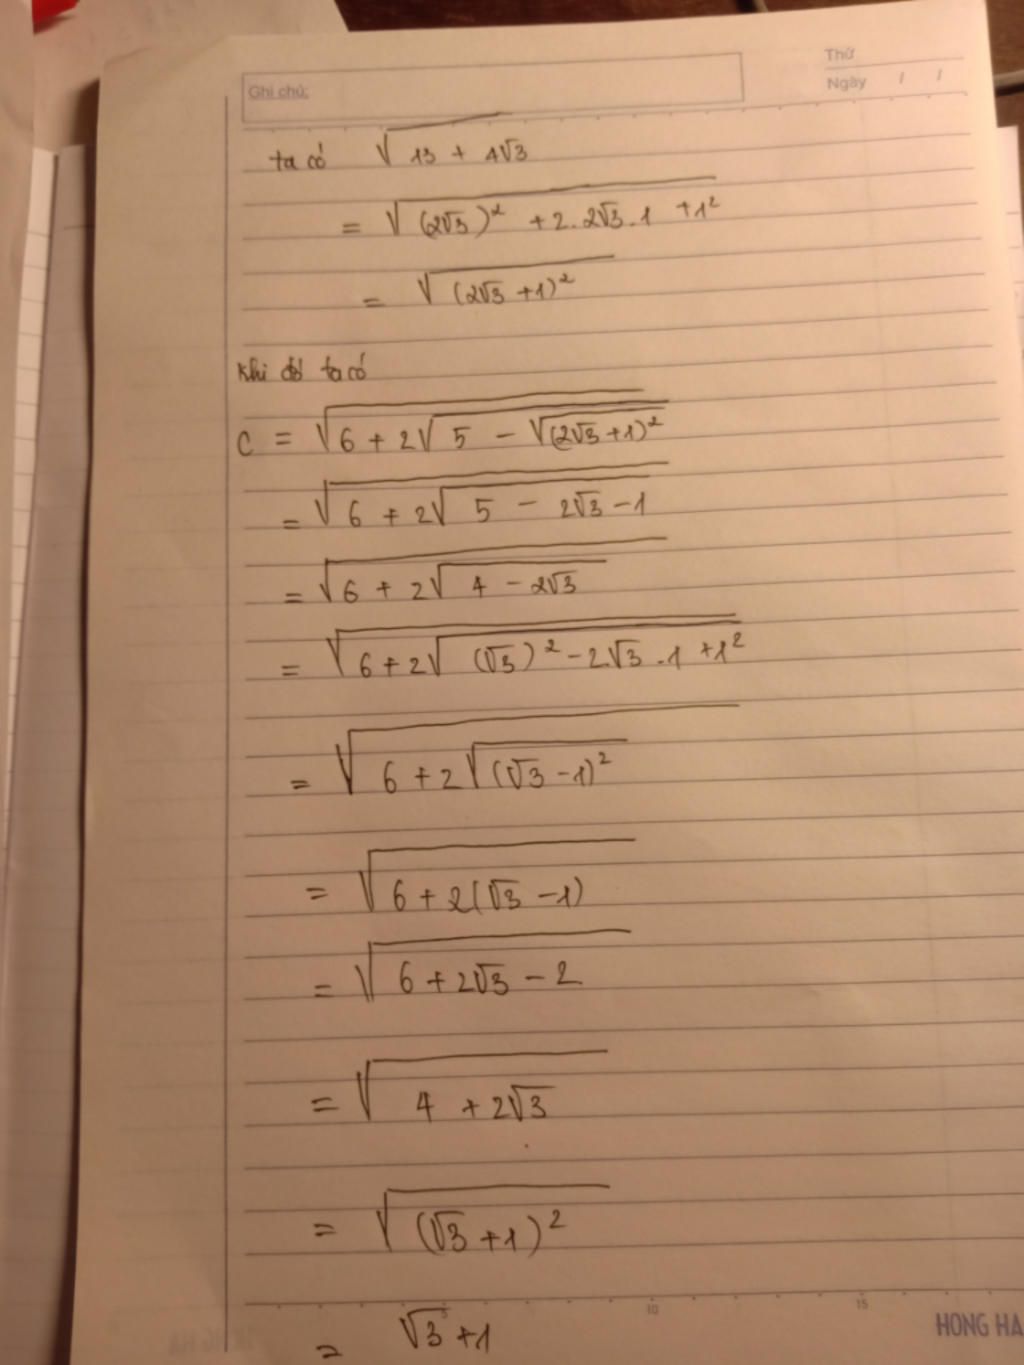 Thứ
Ghi chú:
Ngày / /
ta có √(13 + 4√3)
= √((2√3)² + 2.2√3.1 + 1²)
= √((2√3 + 1)²)
Khi đó ta có
C = √(6 + 2√(5 - √((2√3 + 1)²)))
= √(6 + 2√(5 - 2√3 - 1))
= √(6 + 2√(4 - 2√3))
= √(6 + 2√((√3)² - 2√3.1 + 1²))
= √(6 + 2√((√3 - 1)²))
= √(6 + 2(√3 - 1))
= √(6 + 2√3 - 2)
= √(4 + 2√3)
= √((√3 + 1)²)
5 10 15
= √3 + 1
HONG HA